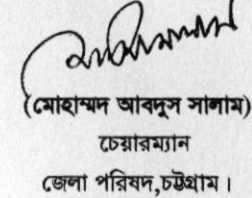 (মোহাম্মদ আবদুস সালাম)
চেয়ারম্যান
জেলা পরিষদ,চট্টগ্রাম।